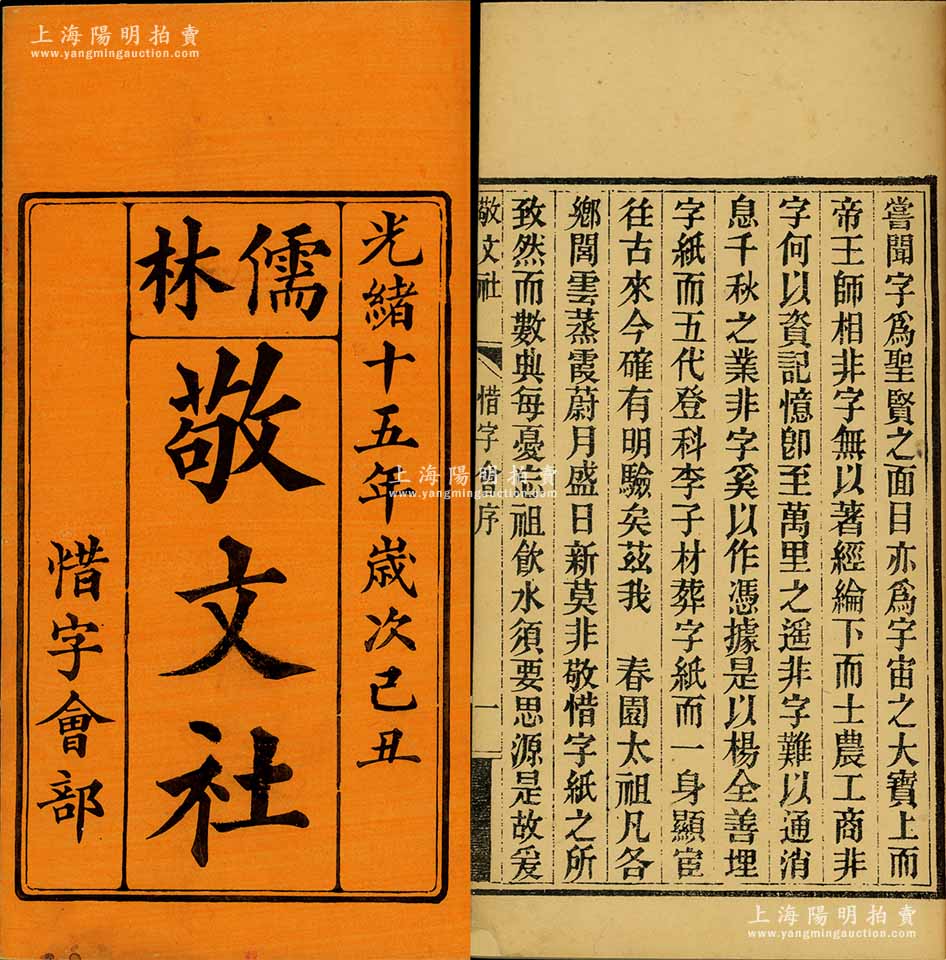 上海陽明拍賣
www.yangmingauction.com
光緒十五年歲次己丑
儒林
敬文社
惜字會部
嘗聞字爲聖賢之面目亦爲宇宙之大寶上而
帝王師相非字無以著經綸下而士農工商非
字何以資記憶卽至萬里之遥非字難以通消
息千秋之業非字奚以作憑據是以楊全善埋
字紙而五代登科李子材葬字紙而一身顯宦
徃古來今確有明驗矣茲我 春園太祖凡各
鄉閭雲蒸霞蔚月盛日新莫非敬惜字紙之所
致然而數典每憂忘祖飲水須要思源是故爰
敬文社 惜字會序 一
上海陽明拍賣
www.yangmingauction.com
上海陽明拍賣
www.yangmingauction.com